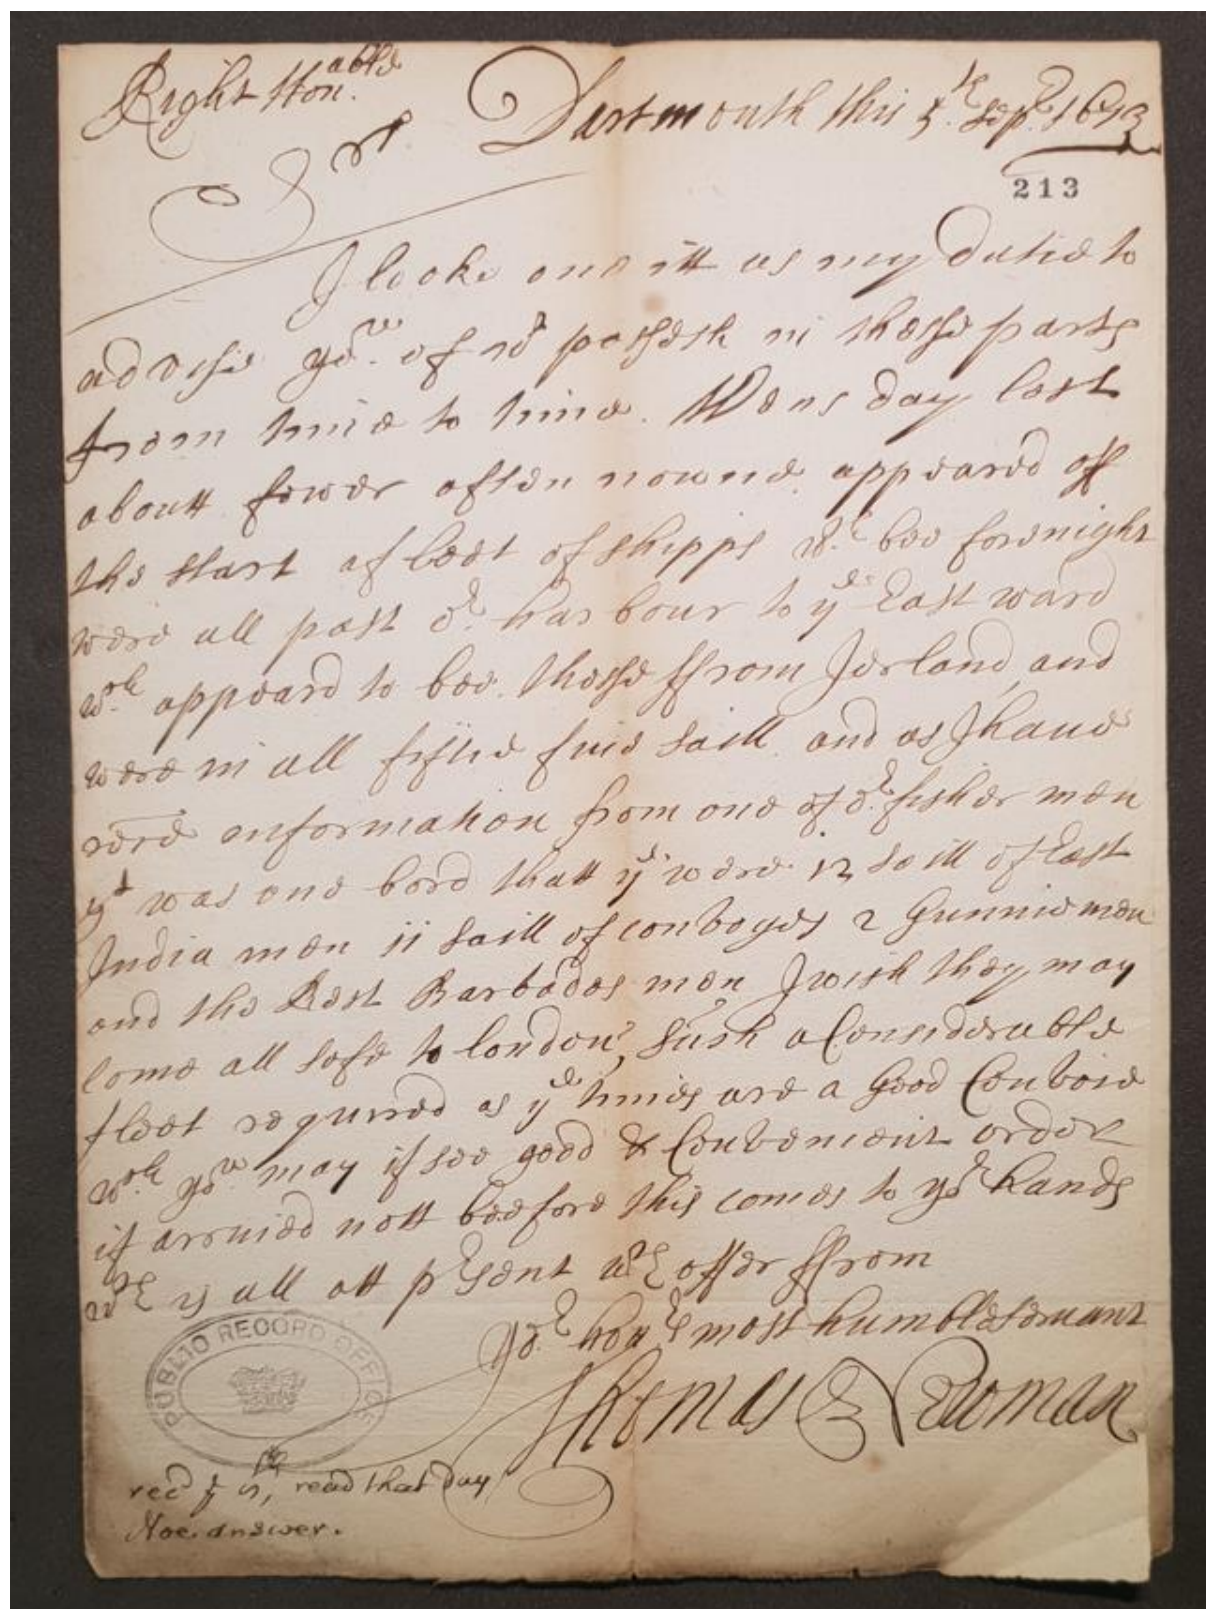 Right Hon.able
Dartmouth this 5.th Sep.r 1673
Sr
213
I looke one itt as my dutie to
advise yo.w of wt passeth in these parts
from time to time. Wensday last
aboutt fower afternowne appeared off
the start a fleet of shipps w.ch bee fore night
were all past o.r harbour to ye East ward
w.ch appeard to bee those ffrom Jerland and
were in all fiftie five saill and as J have
recd enformation from one of o.r fisher men
yt was one bord thatt ye were 12 saill of East
India men 11 saill of convoyes 2 Gunnie men
and the Rest Barbados men J wish they may
Come all safe to london, such a Considerable
fleet required as ye times are a Good Convoie
w.ch yo.w may if see good & Convenient order
if arrived nott beefore this comes to yor hands
wch is all att present wch offer ffrom
Yo.r hon.rs most humble servant
Thomas Newman
PUBLIC RECORD OFFICE
recd ye 7th, read that day
Noe answer.